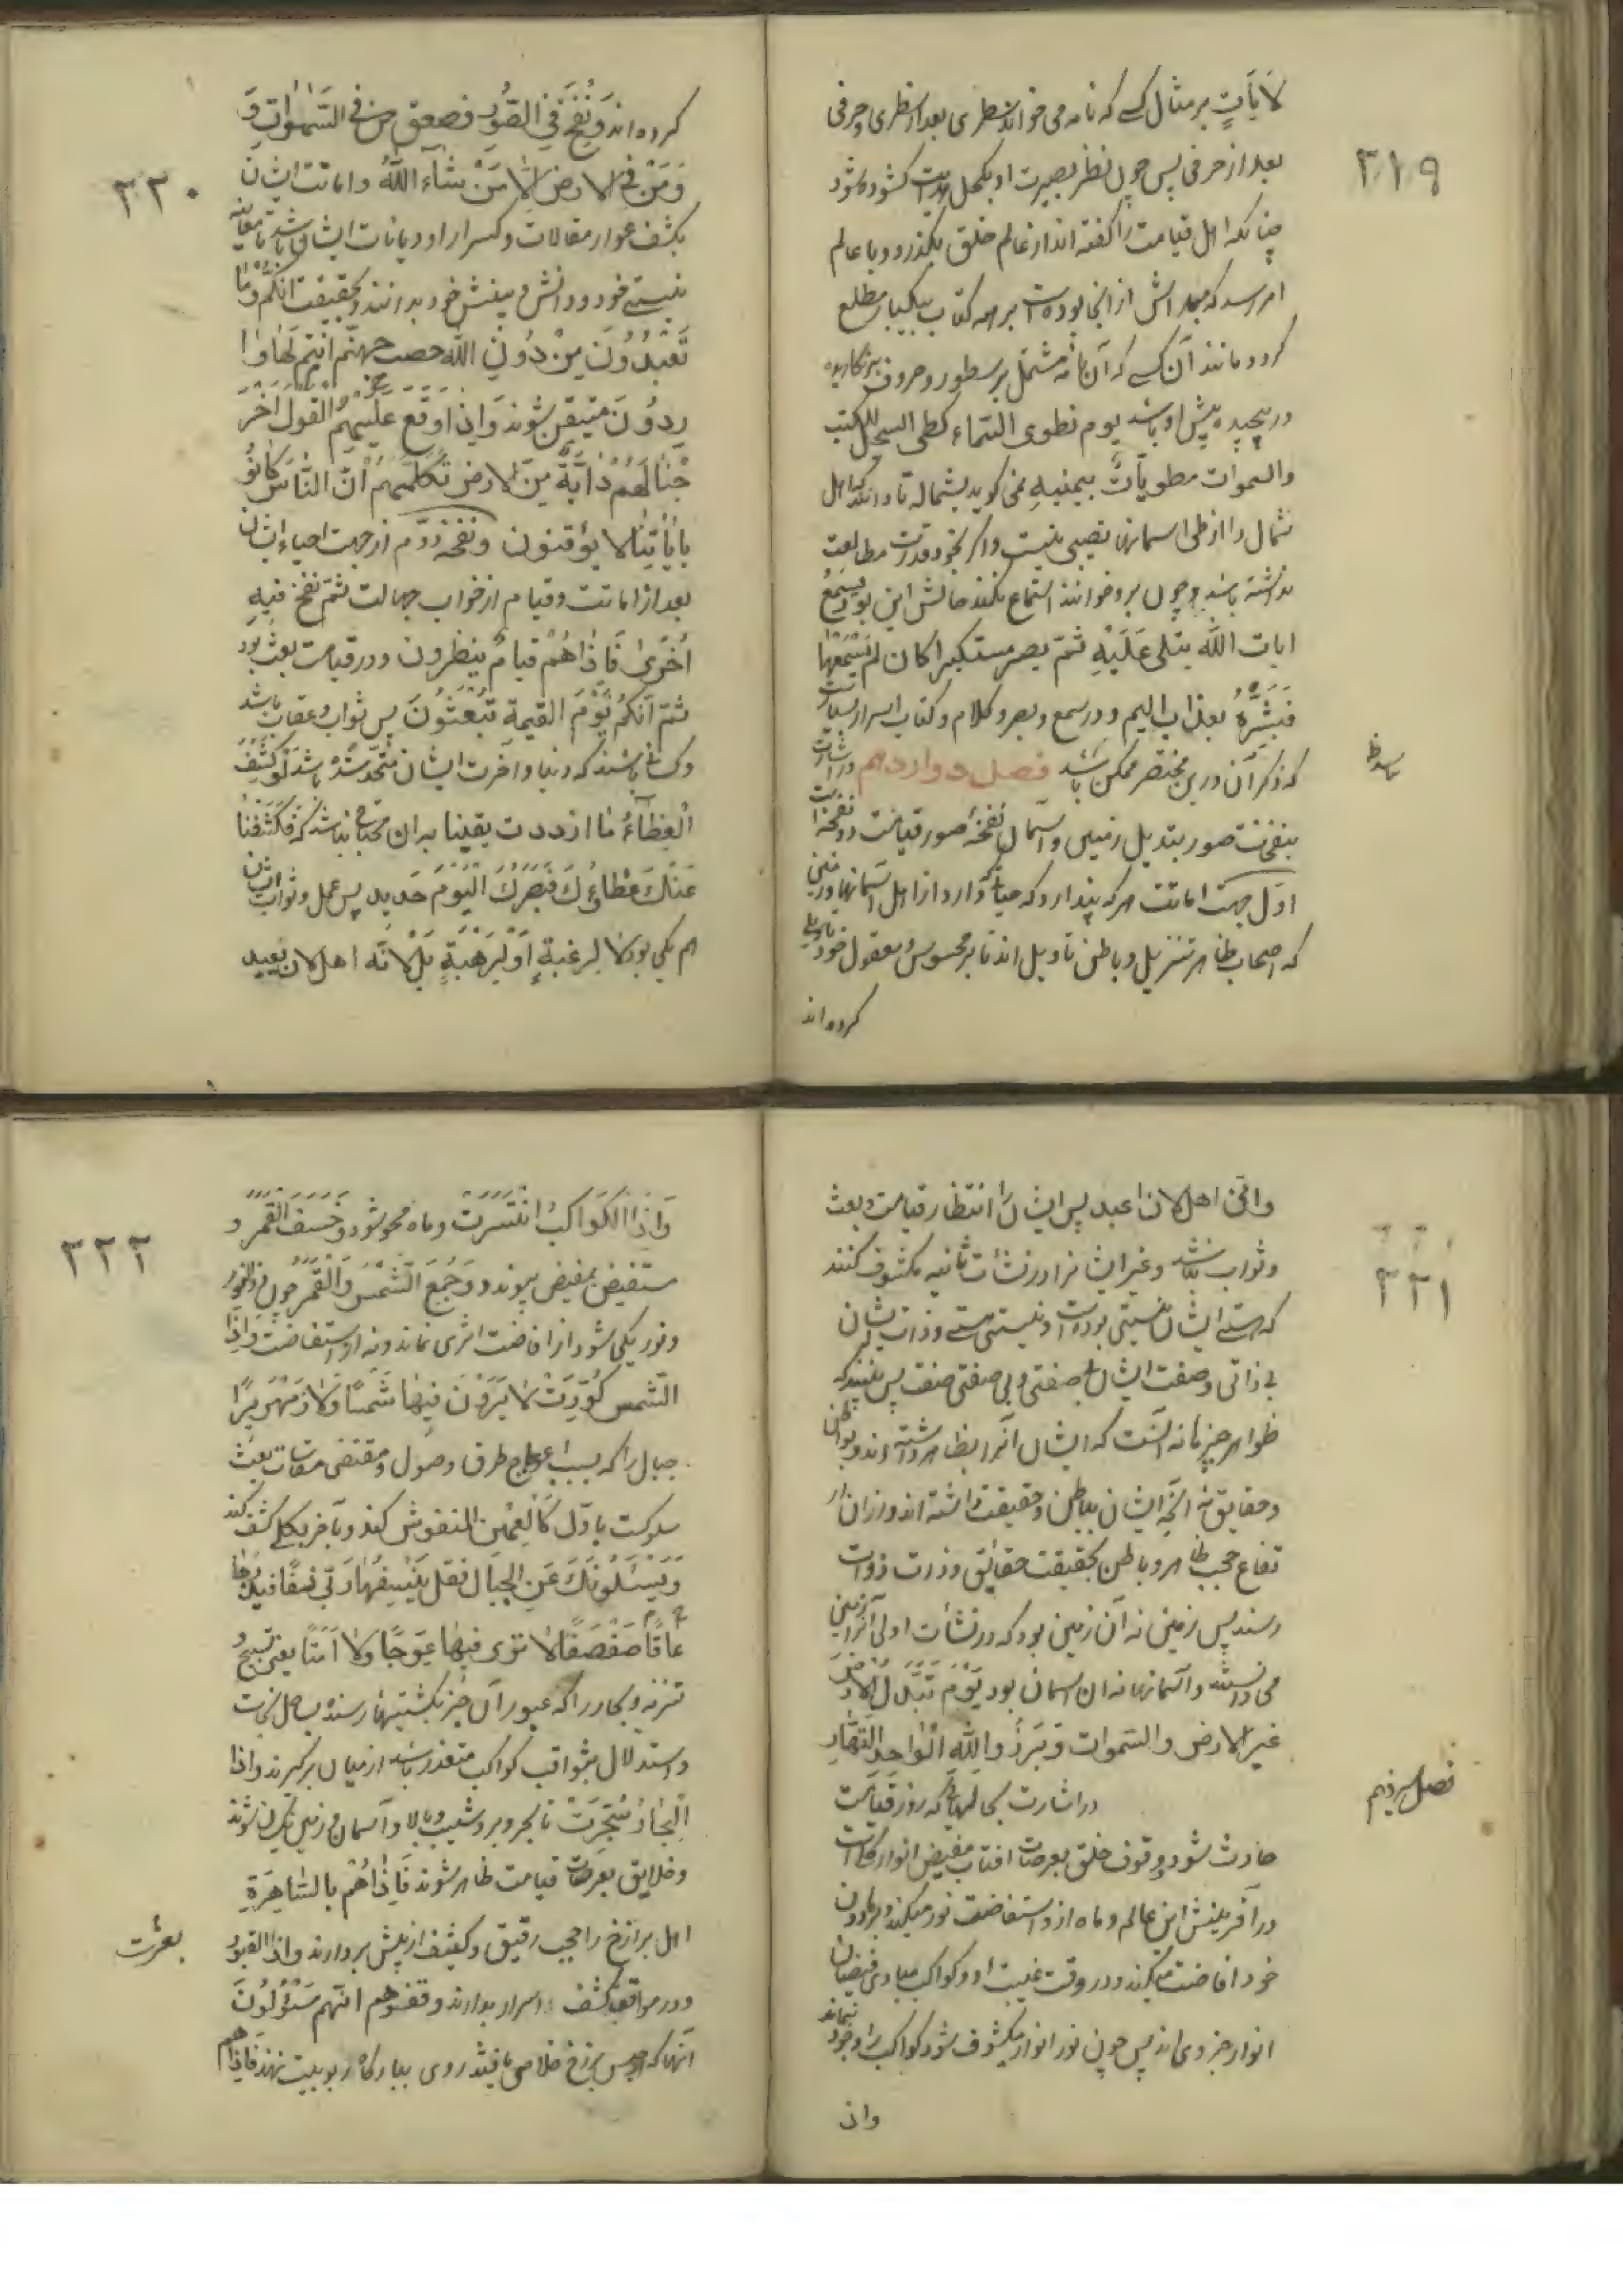 ۳۱۹
لآیاتٍ بر مثال کسے که نامه می خواند سطری بعد از سطری و حرفی
بعد از حرفی پس چون نظر بصیرت او بکحل هدایت کشوده شود
چنانکه اهل قیامت را کفته اند از عالم خلق بکذرد و با عالم
امر رسد که مبداش از انجا بوده است بر همه کتاب بیکبار مطلع
کردد مانند آن کسے که آن نامه مشتمل بر سطور و حروف
در پیچیده پیش او باشد یوم نطوی السّماء کطی السجل للکتب
والسموات مطویّاتٌ بیمینهِ نمی کوید بشماله تا دانند که اهل
شمال را از طی اسمانها نصیبی نیست و اکر بخود قدرت مطالعت
نداشته باشد و چون برو خوانند استماع نکند حالش این بود یسمعُ
ایات اللّه یتلی عَلَیْهِ ثمّ یصر مستکبرا کان لم یسمعها
فبشّرهُ بعذاب الیم و در سمع و بصر و کلام و کتاب اسرار بسیار است
که ذکر آن درین مختصر ممکن باشد فصل دوازدهم در اشارت
بنفخت صور بتدیل زمین و آسمان نفخهٔ صور قیامت دو نفخه است
اوّل جهت اماتت هر که پندارد که حیاتی دارد از اهل آسمانها و زمین
که اصحاب ظاهر تنزیل و باطن تاویل اند تا بر محسوس و معقول خود
کرده اند
۳۲۰
کرده اند وَنُفِخَ فی الصّور فصعق من فی السّمٰوات وَ
وَمَنْ فی الارض الّا مَنْ شآءَ اللّهُ و اماتت ایشان
بکشف عوار مقالات و کسر ار او دیانات ایشان باشد تا
نیستے خود و دانش و بینش خود بدانند و بحقیقت انّکم وما
تَعْبُدُونَ مِنْ دُونِ اللّه حصب جهنّم انتم لَها وٰا
رِدُونَ متیقن شوند وَاِذا وَقَعَ علَیهمُ القول اَخْرَ
جْنا لَهُمْ دآبّةً مِنَ الارض تکلّمهُم انّ النّاسَ کانُو
بِایٰاتِنا لا یوقنون و نفخه دوّم از جهت احیاء ایشان
بعد از اماتت و قیام از خواب جهالت ثمّ نفخ فیهِ
اُخریٰ فَاِذاهُمْ قیامٌ ینظرون و در قیامت بعث بود
ثمّ انّکم یَوْمَ القیمة تُبْعَثُونَ پس ثواب و عقاب باشد
و کسانی باشند که دنیا و آخرت ایشان متّحد شده باشد لَوْ کُشِفَ
الغِطآءُ مَا ازددت یقینا بدان محتاج نباشند که فکَشَفْنا
عَنْكَ غِطاءَكَ فَبَصَرُكَ الْیَوْمَ حَدید پس عمل و ثواب ایشان
هم یکی بود لا لِرغبةٍ اَوْ لِرَهْبَةٍ بَلْ لانّه اهل لان یُعبد
۳۲۱
وانّی اهل لان اعبد پس ایشان را انتظار قیامت و بعث
و ثواب نباشد و غیر ایشانرا در نشأت ثانیه مکشوف کنند
که هستے ایشان نیستی بوده است و نیستی هستے و ذات ایشان
بی ذاتی و صفت ایشان بی صفتی و بی صفتی صفت پس بینند که
ظواهر چیزها نه آنست که ایشان آنرا بظاهر دانسته اند و بواطن
و حقایق نه آنچه ایشان بباطن و حقیقت دانسته اند و از ان ار
تفاع حجب ظاهر و باطن بحقیقت حقائق و ذرت ذوات
رسند پس زمین نه آن زمین بود که در نشأت اولی آنرا زمین
می دانستند و آسمانها نه ان اسمان بود یَوْمَ تُبَدّل الارض
غیر الارض والسّموات وَبَرَزُوا للّه الْواحِدِ القهّار
فصل سیزدهم
در اشارت بحالهایٔ که روز قیامت
حادث شود و وقوف خلق بعرصات افتاب مفیض انوار کلّی است
در آفرینش این عالم و ماه از و استفاضت نور میکند و بر مادون
خود افاضت میکند و در وقت غیبت او و کواکب مبادی فیضان
انوار جزوی اند پس چون نور انوار مکشوف شود کواکب را وجود نماند
واذ
۳۲۲
وَاِذَا الکَواکِبُ انْتَثَرَتْ و ماه محو شود وَخَسَفَ الْقَمَرُ و
مستفیض بمفیض پیوندد وَجُمِعَ الشّمْسُ وَالْقَمَرُ چون ذوالنور
و نور یکی شود از افاضت اثری نماند و نه از استفاضت وَاِذَا
الشّمس کُوّرَتْ لا یَرَوْنَ فیها شَمْسًا وَلا زَمْهَریرًا
جبال را که بسبب اعوجاج طرق وصول و مقتضی مقاسات تعب
سلوکست باوّل کَالعِهْنِ المنفوش کند و بآخر بکلی کشف کند
وَیَسْئَلُونَكَ عَنِ الْجِبالِ فقل یَنْسِفُها رَبّی نسفًا فیذرها
قاعًا صَفْصَفًا لا تری فیها عِوَجًا ولا اَمْتًا یعنی تشبیه و
تنزیه و بحار را که عبور آن جز بکشتیهای رسنده بساحل نجات
و استدلال بثواقب کواکب متعذر باشد از میان برکیرند واذا
الْبِحارُ سُجّرَتْ تا بحر و بر و شیب و بالا و آسمان و زمین یکسان شوند
و خلایق بعرصات قیامت ظاهر شوند فَاِذا هُمْ بالسّاهِرَةِ
اهل برازخ را حجب رقیق و کثیف از پیش بردارند واذا القبور
بعثرت
و در مواقف کشف اسرار بدارند وقفوهم انّهم مَسْئُولُونَ
آنها که از حبس برزخ خلاصی یافتند روی ببارکاه ربوبیت نهند فَاِذا هم